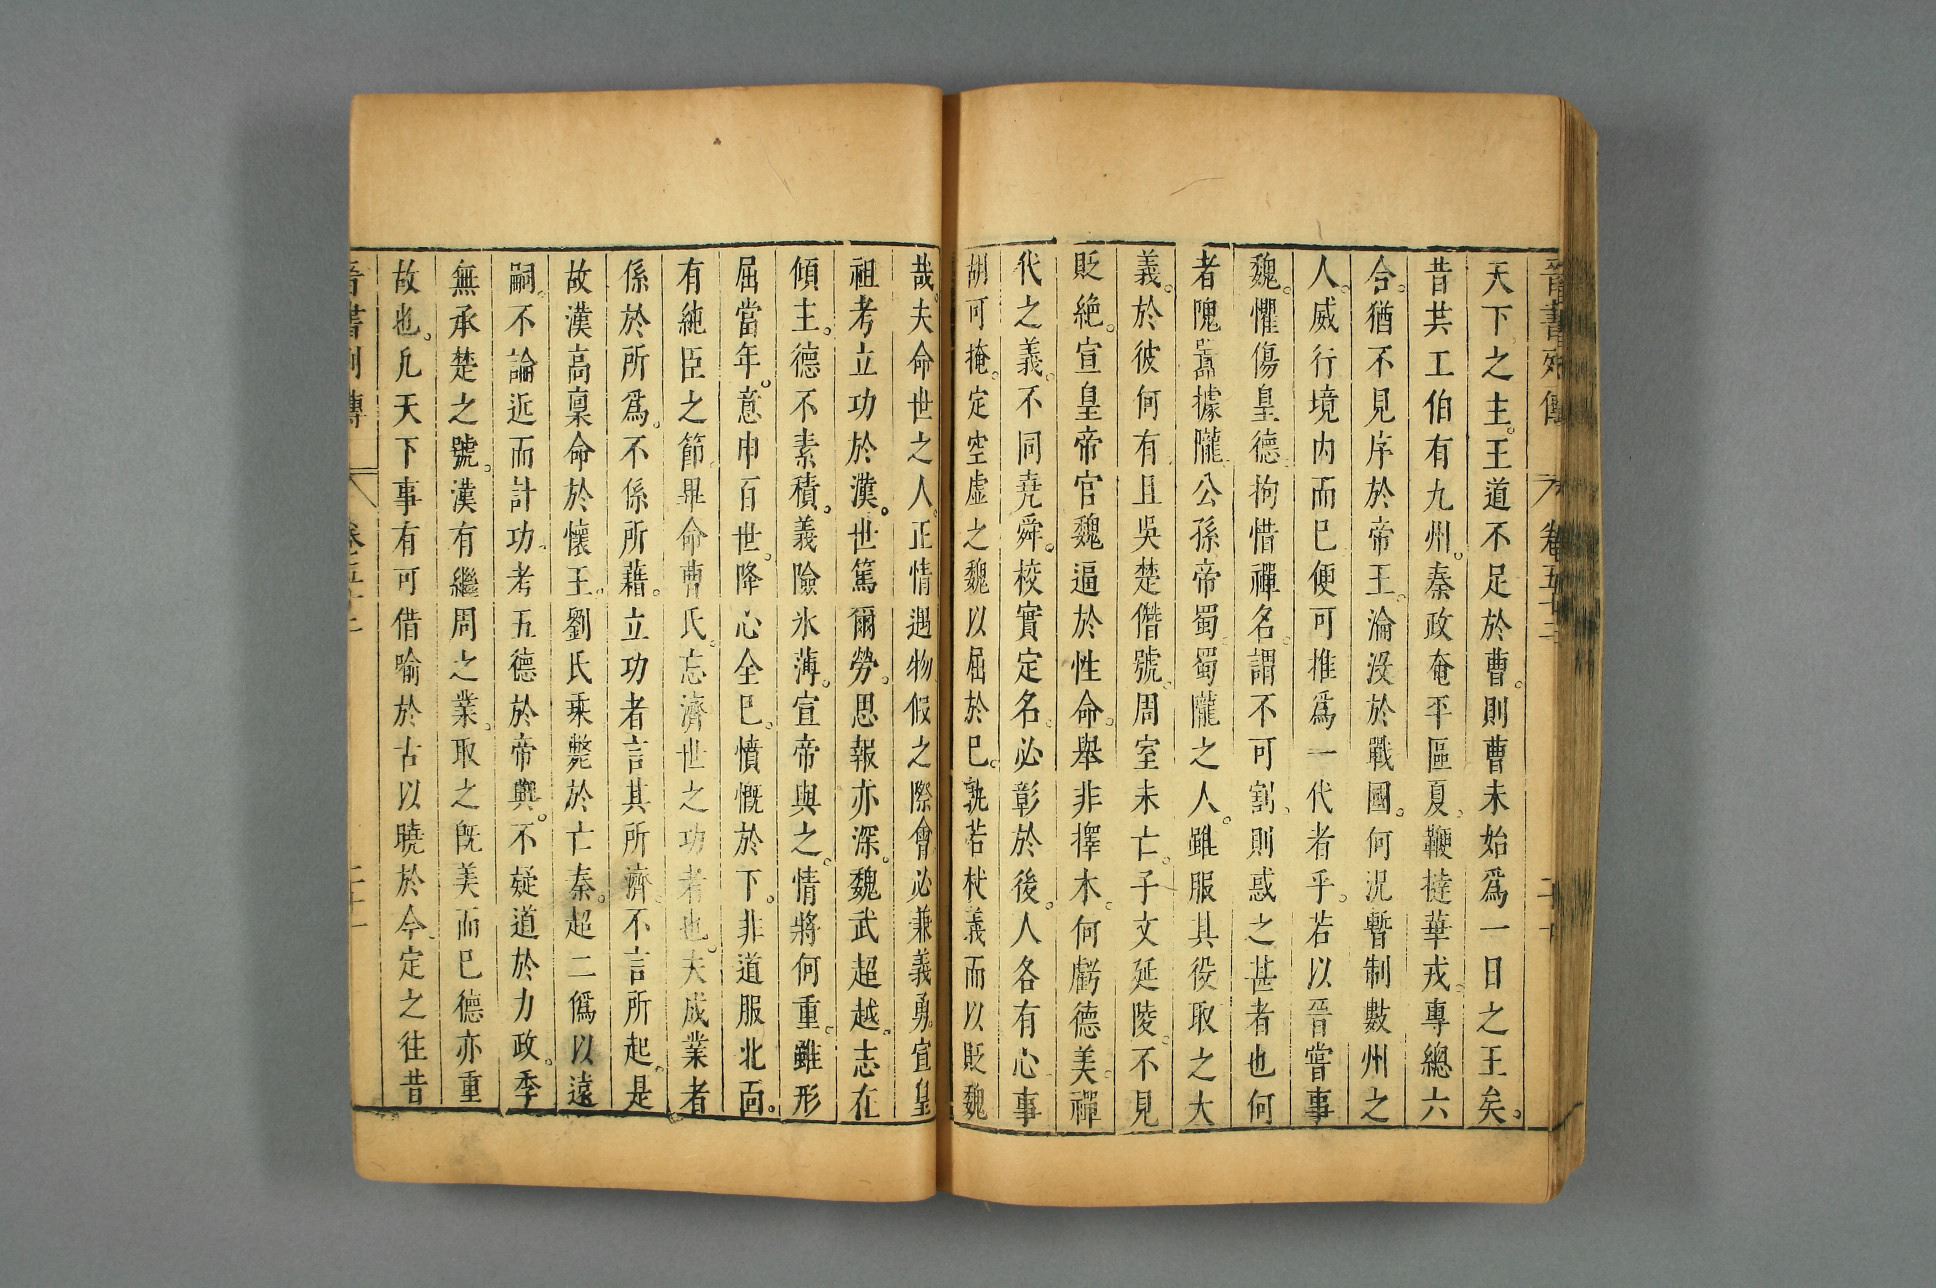 晉書列傳 卷五十二 二十
天下之主。王道不足於曹。則曹未始爲一日之王矣。
昔共工伯有九州。秦政奄平區夏。鞭撻華戎。專總六
合。猶不見序於帝王。淪沒於戰國。何況暫制數州之
人。威行境內而已便可推爲一代者乎。若以晉嘗事
魏。懼傷皇德。拘惜禪名。謂不可割。則惑之甚者也何
者隗囂據隴。公孫帝蜀。蜀隴之人。雖服其役取之大
義。於彼何有且吳楚僭號。周室未亡。子文延陵。不見
貶絕。宣皇帝官魏逼於性命。舉非擇木。何虧德美。禪
代之義。不同堯舜。校實定名。必彰於後。人各有心事
胡可掩。定空虛之魏以屈於已。孰若杖義而以貶魏
哉。夫命世之人。正情遇物假之際會必兼義勇。宣皇
祖考立功於漢。世篤爾勞。思報亦深。魏武超越。志在
傾主。德不素積。義險冰薄。宣帝與之。情將何重。雖形
屈當年。意申百世。降心全已。憤慨於下。非道服北面。
有純臣之節。畢命曹氏。忘濟世之功者也。夫成業者
係於所爲。不係所藉。立功者言其所濟。不言所起。是
故漢高稟命於懷王。劉氏乘斃於亡秦。超二僞以遠
嗣。不論近而計功。考五德於帝典。不疑道於力政。季
無承楚之號。漢有繼周之業。取之旣美而已德亦重
故也。凡天下事有可借喻於古以曉於今。定之往昔
晉書列傳 卷五十二 二十一